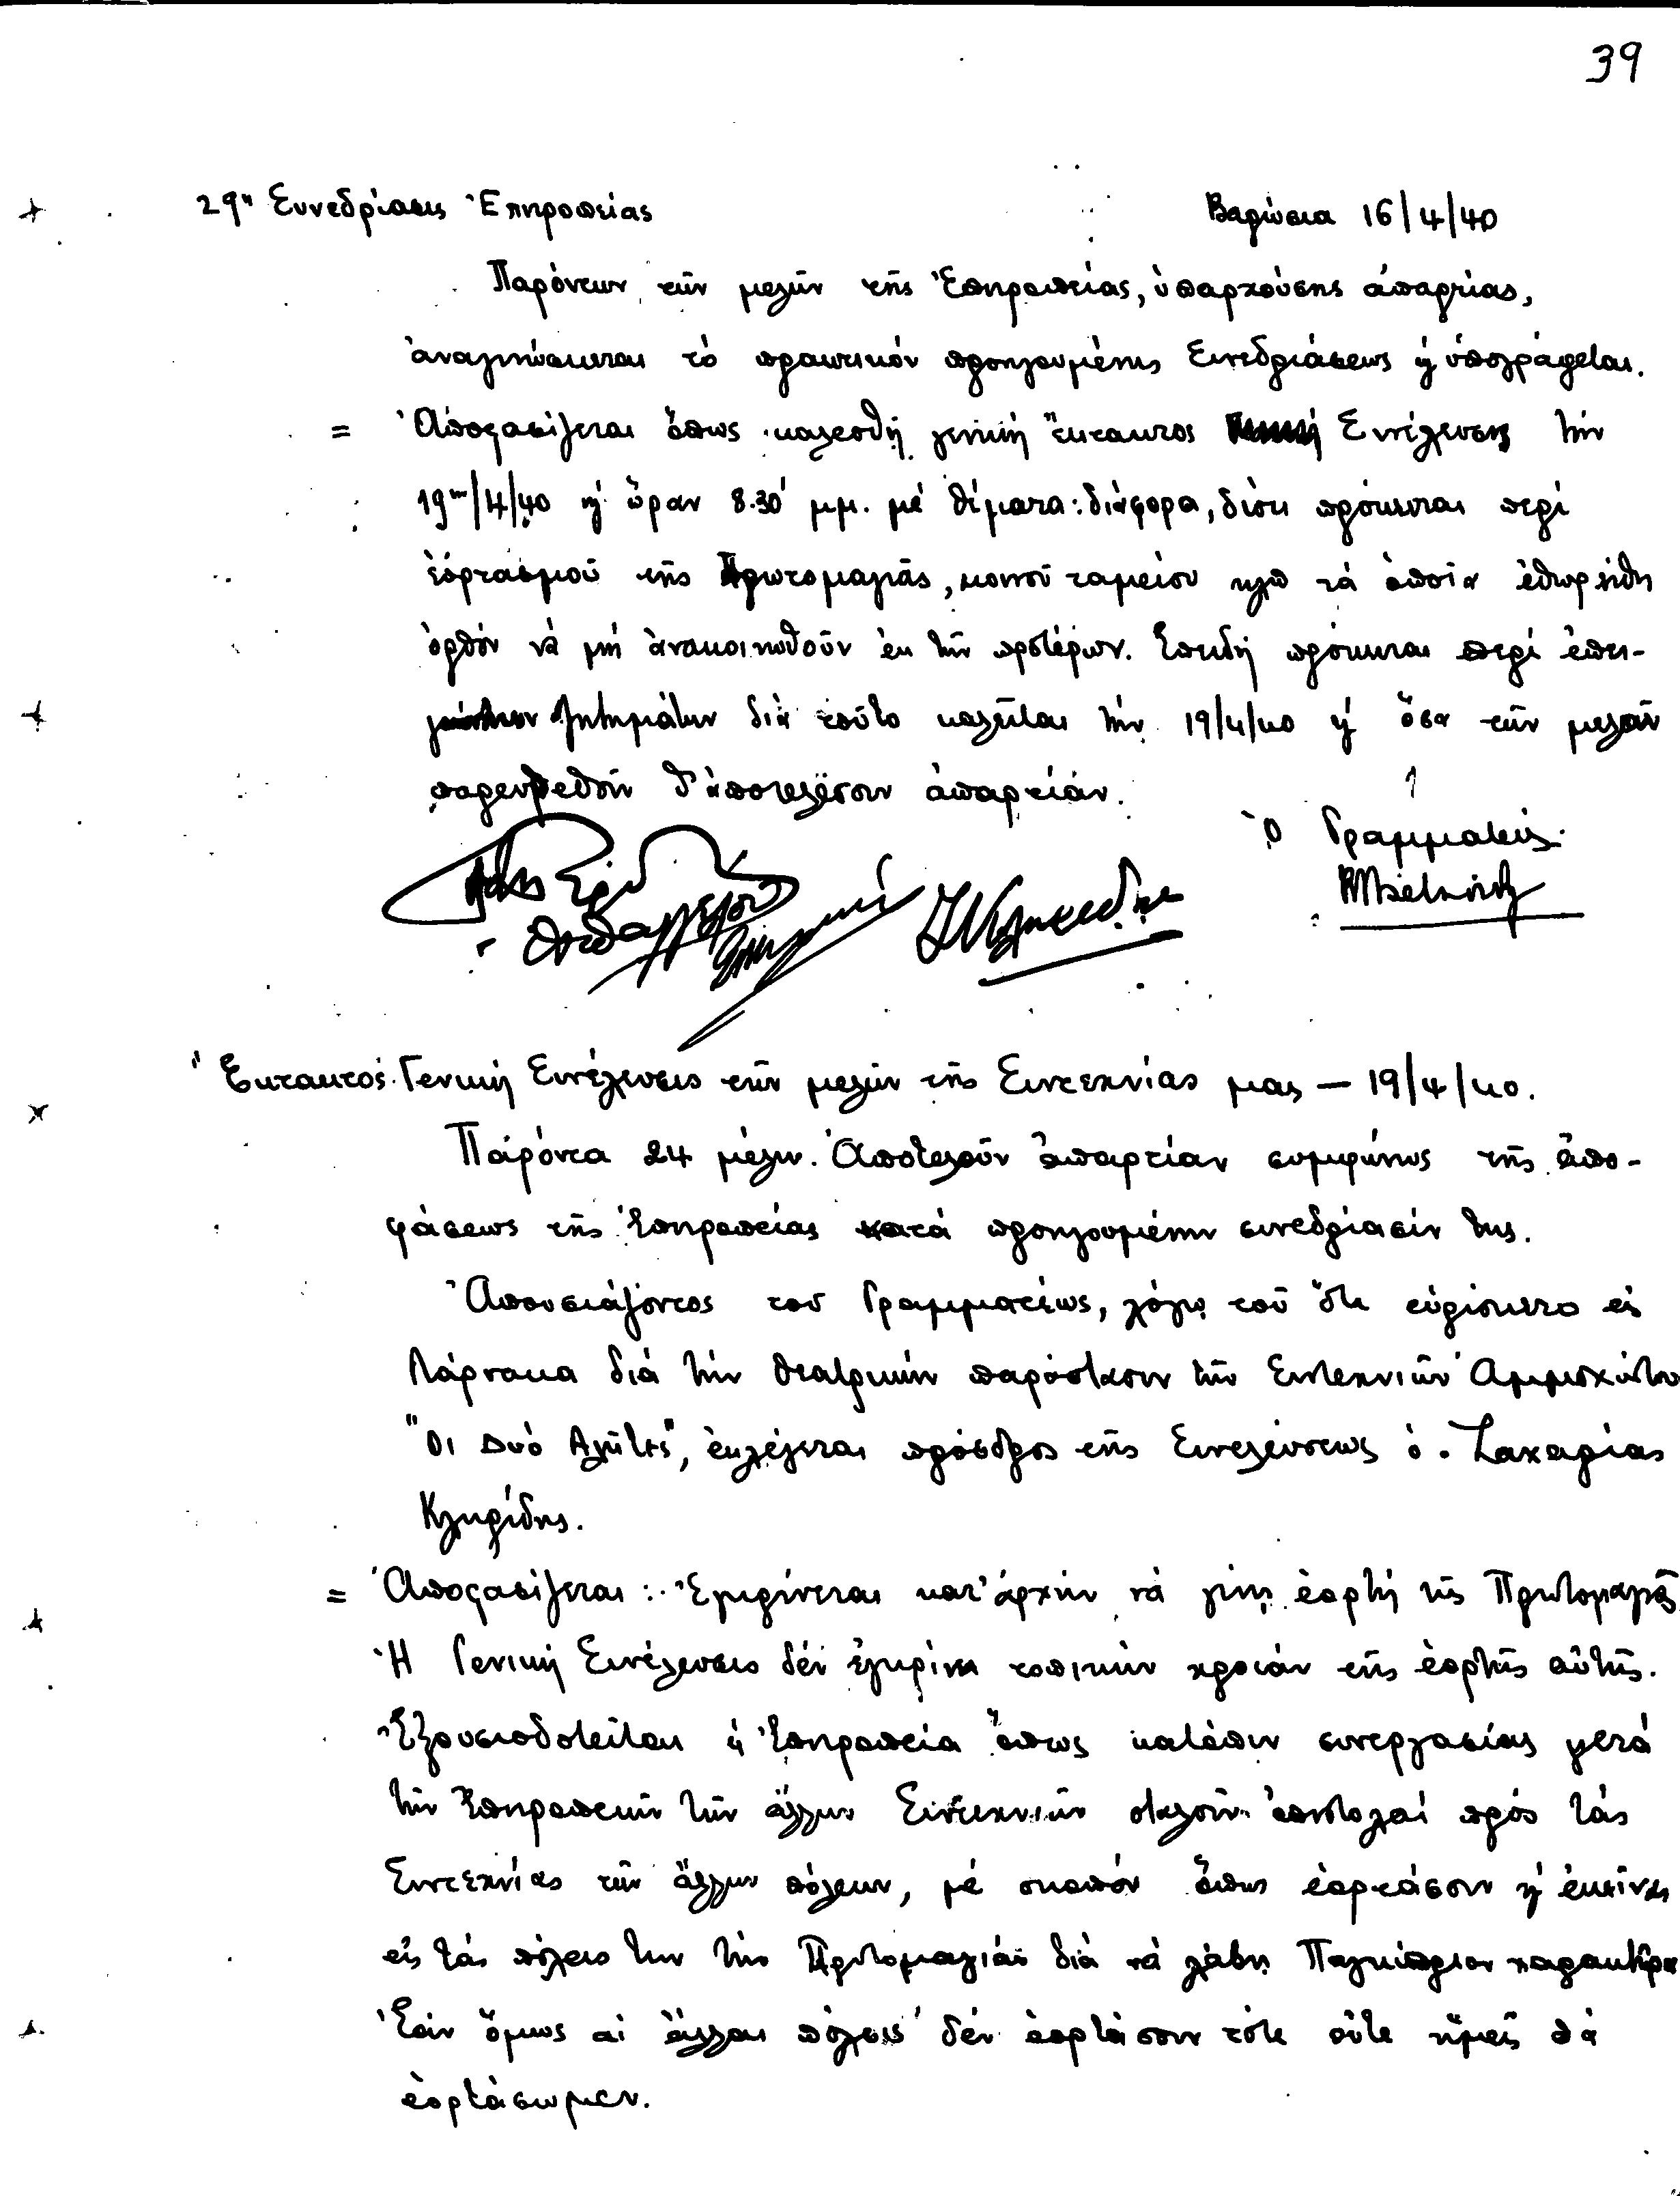 39
29η Συνεδρίασις Ἐπιτροπείας Βαρώσια 16/4/40
Παρόντων τῶν μελῶν τῆς Ἐπιτροπείας, ὑπαρχούσης ἀπαρτίας,
ἀναγινώσκεται τό πρακτικόν προηγουμένης Συνεδριάσεως ϗ ὑπογράφεται.
= Ἀποφασίζεται ὅπως καλεσθῇ γενική ἔκτακτος Συνέλευσις τήν
19ην/4/40 ϗ ὥραν 8.30' μμ. μέ θέματα: διάφορα, διότι πρόκειται περί
ἑορτασμοῦ τῆς Πρωτομαγιᾶς, κοινοῦ ταμείου κλπ τά ὁποῖα ἐθωρήθη
ὀρθόν νά μή ἀνακοινωθοῦν ἐκ τῶν προτέρων. Ἐπειδή πρόκειται περί ἐπει-
γόντων ζητημάτων διά τοῦτο καλεῖται τήν 19/4/40 ϗ ὅσα τῶν μελῶν
παρευρεθοῦν θ' ἀποτελέσουν ἀπαρτίαν.
Ὁ Γραμματεύς
Ἔκτακτος Γενική Συνέλευσις τῶν μελῶν τῆς Συντεχνίας μας – 19/4/40.
Παρόντα 24 μέλη. Ἀποτελοῦν ἀπαρτίαν συμφώνως τῆς ἀπο-
φάσεως τῆς Ἐπιτροπείας κατά προηγουμένην συνεδρίασίν της.
Ἀπουσιάζοντος τοῦ Γραμματέως, λόγῳ τοῦ ὅτι εὑρίσκετο εἰς
Λάρνακα διά τήν θεατρικήν παράστασιν τῶν Συντεχνιῶν Ἀμμοχώστου
"Οι Δυό Αλῆτες", ἐκλέγεται πρόεδρος τῆς Συνελεύσεως ὁ Ζαχαρίας
Κληρίδης.
= Ἀποφασίζεται: Ἐγκρίνεται κατ' ἀρχήν νά γίνῃ ἑορτή τῆς Πρωτομαγιᾶς
Ἡ Γενική Συνέλευσις δέν ἐγκρίνει τοπικήν χροιάν τῆς ἑορτῆς αὐτῆς.
Ἐξουσιοδοτεῖται ἡ Ἐπιτροπεία ὅπως κατόπιν συνεργασίας μετά
τῶν Ἐπιτροπειῶν τῶν ἄλλων Συντεχνιῶν σταλοῦν ἐπιστολαί πρός τάς
Συντεχνίας τῶν ἄλλων πόλεων, μέ σκοπόν ὅπως ἑορτάσουν ϗ ἐκεῖναι
εἰς τάς πόλεις των τήν Πρωτομαγιάν διά νά λάβῃ Παγκύπριον χαρακτῆρα
Ἐάν ὅμως αἱ ἄλλαι πόλεις δέν ἑορτάσουν τότε οὔτε ἡμεῖς θά
ἑορτάσωμεν.